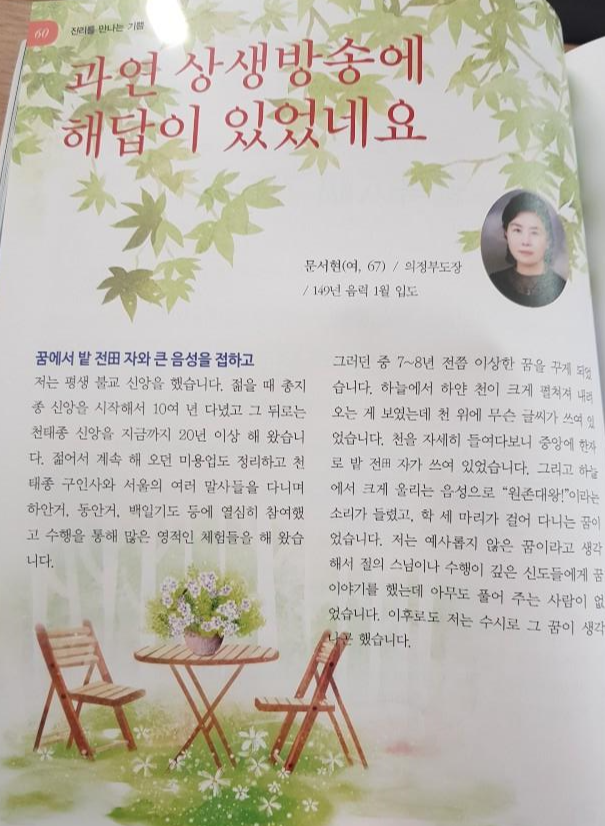 60
진리를 만나는 기쁨
과연 상생방송에
해답이 있었네요
문서현(여, 67) / 의정부도장
/ 149년 음력 1월 입도
꿈에서 밭 전田 자와 큰 음성을 접하고
저는 평생 불교 신앙을 했습니다. 젊을 때 총지
종 신앙을 시작해서 10여 년 다녔고 그 뒤로는
천태종 신앙을 지금까지 20년 이상 해 왔습니
다. 젊어서 계속 해 오던 미용업도 정리하고 천
태종 구인사와 서울의 여러 말사들을 다니며
하안거, 동안거, 백일기도 등에 열심히 참여했
고 수행을 통해 많은 영적인 체험들을 해 왔습
니다.
그러던 중 7~8년 전쯤 이상한 꿈을 꾸게 되었
습니다. 하늘에서 하얀 천이 크게 펼쳐져 내려
오는 게 보였는데 천 위에 무슨 글씨가 쓰여 있
었습니다. 천을 자세히 들여다보니 중앙에 한자
로 밭 전田 자가 쓰여 있었습니다. 그리고 하늘
에서 크게 울리는 음성으로 “원존대왕!”이라는
소리가 들렸고, 학 세 마리가 걸어 다니는 꿈이
었습니다. 저는 예사롭지 않은 꿈이라고 생각
해서 절의 스님이나 수행이 깊은 신도들에게 꿈
이야기를 했는데 아무도 풀어 주는 사람이 없
었습니다. 이후로도 저는 수시로 그 꿈이 생각
나곤 했습니다.